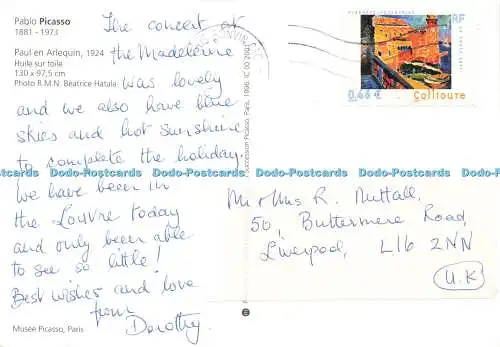 Pablo Picasso
1881 - 1973
Paul en Arlequin, 1924
Huile sur toile
130 x 97,5 cm
Photo R.M.N. Béatrice Hatala
The concert at
the Madeleine
was lovely
and we also have blue
skies and hot sunshine
to complete the holiday.
We have been in
the Louvre today
and only been able
to see so little!
Best wishes and love
from
Dorothy.
Musée Picasso, Paris
Succession Picasso, Paris, 1996.
RF
0,46 €
Collioure
Mr & Mrs R. Nuttall,
50, Buttermere Road,
Liverpool, L16 2NN
U.K
Dodo-Postcards Dodo-Postcards Dodo-Postcards Dodo-Postcards
Dodo-Postcards Dodo-Postcards Dodo-Postcards Dodo-Postcards
Dodo-Postcards Dodo-Postcards Dodo-Postcards Dodo-Postcards